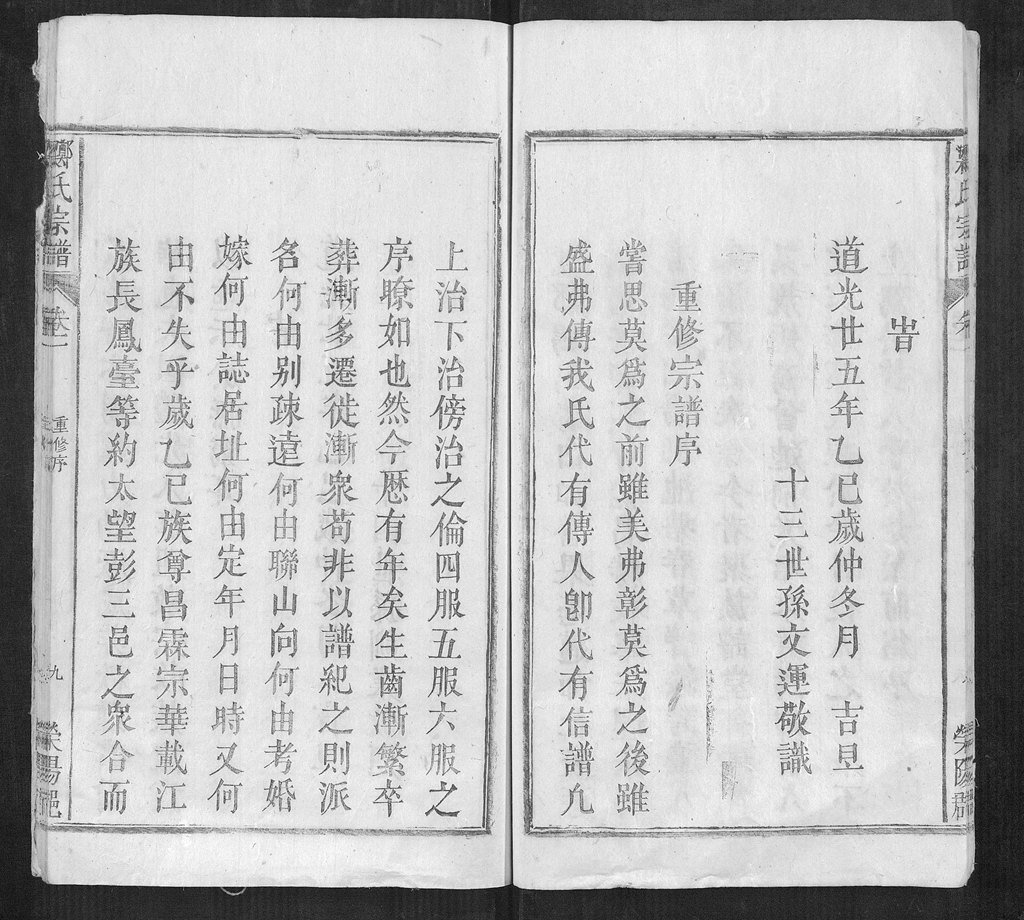 旹
道光廿五年乙巳歲仲冬月　吉旦
十三世孫文運敬識
重修宗譜序
嘗思莫爲之前雖美弗彰莫爲之後雖
盛弗傳我氏代有傳人卽代有信譜凢
上治下治傍治之倫四服五服六服之
序暸如也然今厯有年矣生齒漸繁卒
葬漸多遷徙漸衆苟非以譜紀之則派
名何由别疎遠何由聯山向何由考婚
嫁何由誌居址何由定年月日時又何
由不失乎歲乙巳族尊昌霖宗華載江
族長鳳臺等約太望彭三邑之衆合而
鄭氏宗譜
卷一
重修序
九